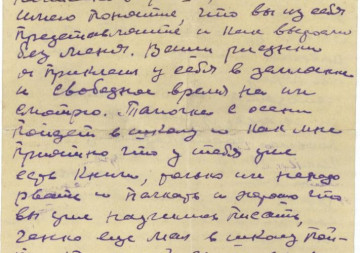 имею понятие, что вы из себя
представляете и как выросли
без меня. Ваши рисунки
я приклеил у себя в землянке
и свободное время на них
смотрю. Тамочка с осени
пойдет в школу и как мне
приятно что у тебя уже
есть книги, только их надо
рвать и пачкать и хорошо что
вы уже научились писать,
еще мал в школу